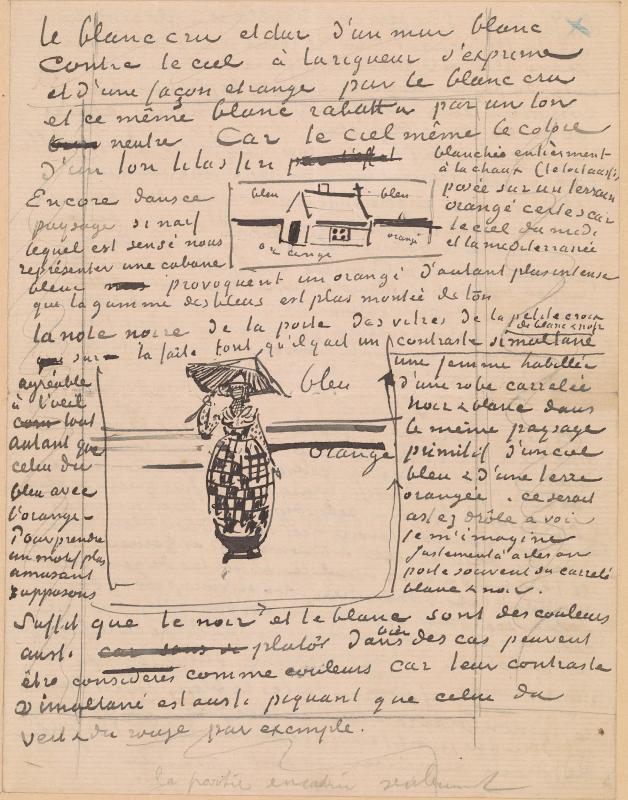 le blanc cru et dur d'un mur blanc
contre le ciel à la rigueur s'exprime
et d'une façon etrange par le blanc cru
et ce même blanc rabattu par un ton
neutre Car le ciel même le colore
d'un ton lilas fin
Encore dans ce
paysage si naif
lequel est sensé nous
représenter une cabane
blanchie entièrement
à la chaux (le toit aussi)
posée sur un terrain
orangé certes car
le ciel du midi
et la méditerranée
bleu
bleu
orange
orangé
bleue provoquent un orangé d'autant plus intense
que la gamme des bleus est plus montée de ton
la note noire de la porte des vitres de la petite croix
sur le faite font qu'il y ait un contraste simultané
de blanc & noir
agréable
à l'œil
tout
autant que
celui du
bleu avec
l'orangé-
Pour prendre
un motif plus
amusant
supposons
bleu
orangé
une femme habillée
d'une robe carrelée
noir & blanc dans
le même paysage
primitif d'un ciel
bleu & d'une terre
orangée. ce serait
assez drôle a voir
je m'imagine
Justement à arles on
porte souvent du carrelé
blanc & noir.
Suffit que le noir et le blanc sont des couleurs
aussi plutôt dans bien des cas peuvent
être considérés comme couleurs car leur contraste
simultané est aussi piquant que celui du
vert & du rouge par exemple.
la partie encadrée seulement